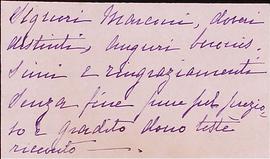 Signori Marconi, doveri
distinti, auguri buonis-
simi e ringraziamenti
senza fine pure pel prezio-
so e gradito dono testè
ricevuto —.